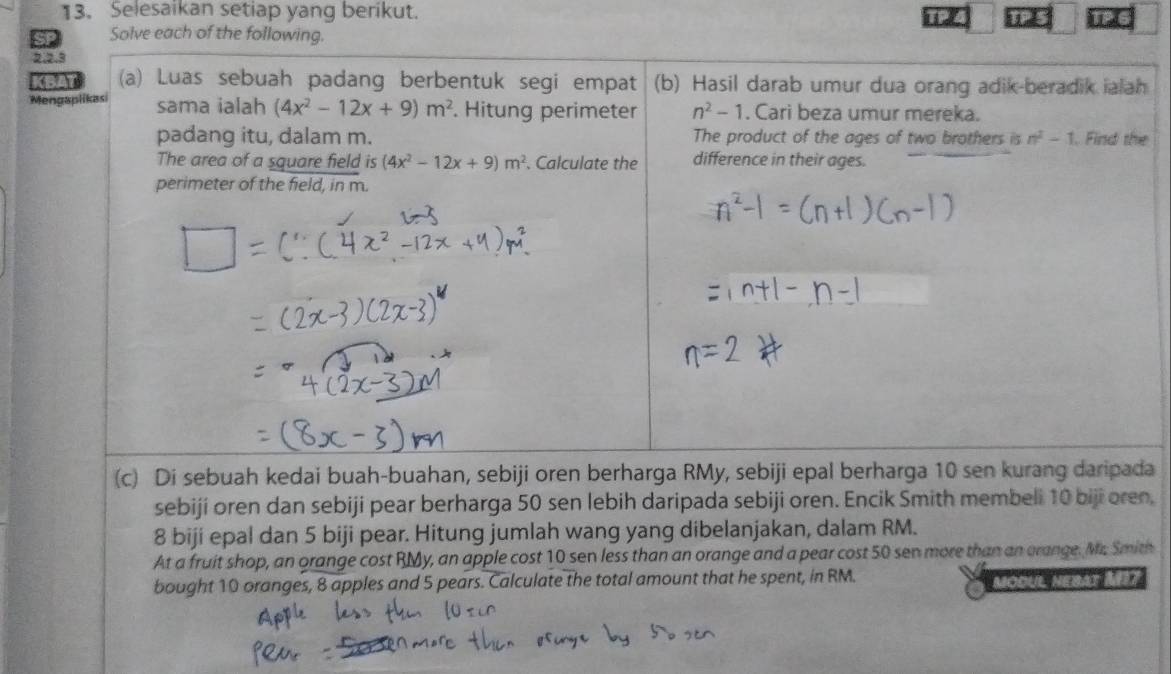 13. Selesaikan setiap yang berikut.
TP 4 TP 5 TP 6
SP Solve each of the following.
2.2.3
KBAT
Mengaplikasi
(a) Luas sebuah padang berbentuk segi empat
sama ialah (4x² – 12x + 9) m². Hitung perimeter
padang itu, dalam m.
The area of a square field is (4x² – 12x + 9) m². Calculate the
perimeter of the field, in m.
= (4x² -12x +9) m².
= (2x-3)(2x-3)
= 4(2x-3)M
= (8x-3)m
(b) Hasil darab umur dua orang adik-beradik ialah
n² – 1. Cari beza umur mereka.
The product of the ages of two brothers is n² – 1. Find the
difference in their ages.
n²-1 = (n+1)(n-1)
= n+1- n-1
n=2 #
(c) Di sebuah kedai buah-buahan, sebiji oren berharga RMy, sebiji epal berharga 10 sen kurang daripada
sebiji oren dan sebiji pear berharga 50 sen lebih daripada sebiji oren. Encik Smith membeli 10 biji oren,
8 biji epal dan 5 biji pear. Hitung jumlah wang yang dibelanjakan, dalam RM.
At a fruit shop, an orange cost RMy, an apple cost 10 sen less than an orange and a pear cost 50 sen more than an orange. Mr. Smith
bought 10 oranges, 8 apples and 5 pears. Calculate the total amount that he spent, in RM.
MODUL HEBAT M17
Apple less then 10 sen
Pear = more then orange by 50 sen